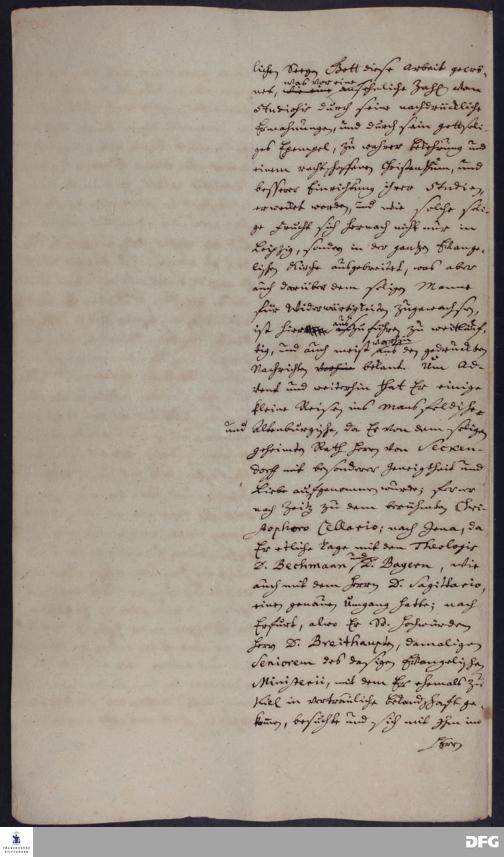 lichen Seegen Gott diese Arbeit gecrö-
net, was vor eine ansehnliche Zahl von
Studiosis durch seine nachdrückliche
Ermahnungen, und durch sein gottseli-
ges Exempel, zu wahrer Bekehrung und
einem rechtschaffenen Christenthum, und
besserer Einrichtung ihrer Studien,
erwecket worden, und wie solche seli-
ge Frucht sich hernach nicht nur in
Leipzig, sondern in der gantzen Evange-
lischen Kirche ausgebreitet, was aber
auch darüber dem seligen Manne
für Widerwärtigkeiten zugewachsen,
ist hier anzuführen zu weitläuf-
tig, und auch meist aus den gedruckten
Nachrichten bekant. Um Ad-
vent und weiterhin that Er einige
kleine Reisen ins Mansfeldische
und Altenburgische, da Er von dem seligen
geheimten Rath Herrn von Secken-
dorff mit besonderer Geneigtheit und
Liebe aufgenommen wurde; ferner
nach Zeitz zu dem berühmten Chri-
stophoro Cellario; nach Jena, da
Er etliche Tage mit den Theologis
D. Bechmann und D. Bayern, wie
auch mit dem Herrn D. Sagittario,
einen genauen Umgang hatte; nach
Erfurt, alwo Er Sr. Hochwürden
Herrn D. Breithaupten, damaligen
Seniorem des dasigen Evangelischen
Ministerii, mit dem Er ehemals zu
Kiel in vertrauliche bekandschafft ge-
kommen, besuchte und sich mit Ihm im
Herrn
FRANCKESCHE
STIFTUNGEN
DFG